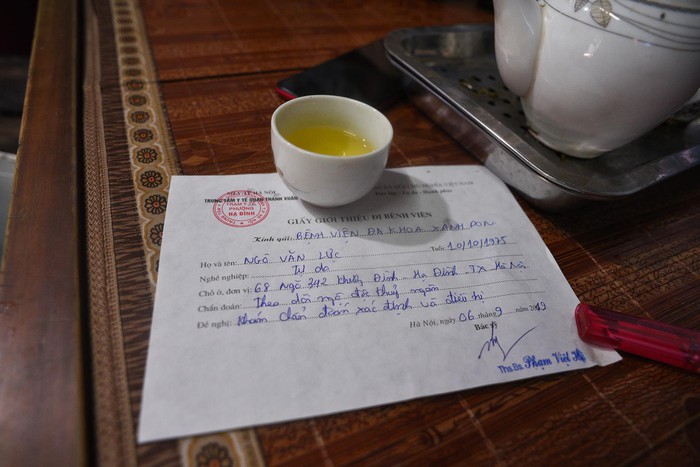 SỞ Y TẾ HÀ NỘI
TRUNG TÂM Y TẾ QUẬN THANH XUÂN
TRẠM Y TẾ
PHƯỜNG
HẠ ĐÌNH
GIẤY GIỚI THIỆU ĐI BỆNH VIỆN
Kính gửi: BỆNH VIỆN ĐA KHOA XANH PON
Họ và tên: NGÔ VĂN LỰC Tuổi: 10/10/1975
Nghề nghiệp: Tự do
Chỗ ở, đơn vị: 68 Ngõ 342 Khương Đình Hạ Đình TX Hà Nội
Chẩn đoán: Theo dõi ngộ độc thuỷ ngân
Đề nghị: Khám chẩn đoán xác định và điều trị
Hà Nội, ngày 06 tháng 9 năm 2019
Bác sỹ
Ths.Bs. Phạm Việt